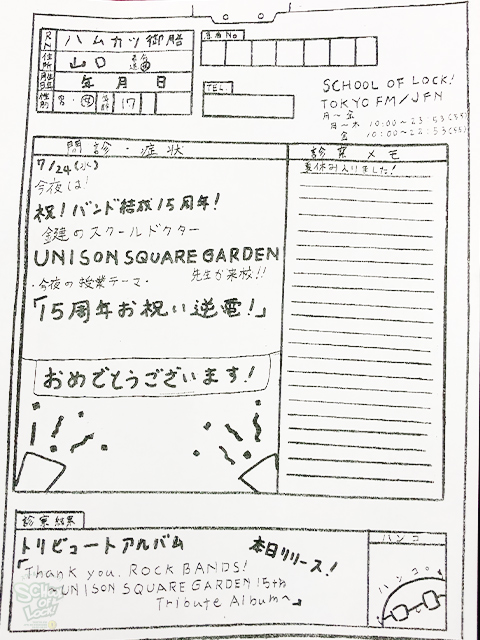 RN ハムカツ御膳
患者No
住所 山口
年 月 日
性別 男・女 年齢 17
TEL.
SCHOOL OF LOCK!
TOKYO FM/JFN
月〜金
月〜木 10:00〜23:53(55)
金 10:00〜22:53(55)
問診・症状
診察メモ
7/24(水)
夏休み入りました!
今夜は!
祝!バンド結成15周年!
鍵のスクールドクター
UNISON SQUARE GARDEN
先生が来校!!
・今夜の授業テーマ・
「15周年お祝い逆電!」
おめでとうございます!
診察結果
ハンコ
トリビュートアルバム 本日リリース!
「Thank you, ROCK BANDS!
〜UNISON SQUARE GARDEN 15th
Tribute Album〜」
ハンコ。